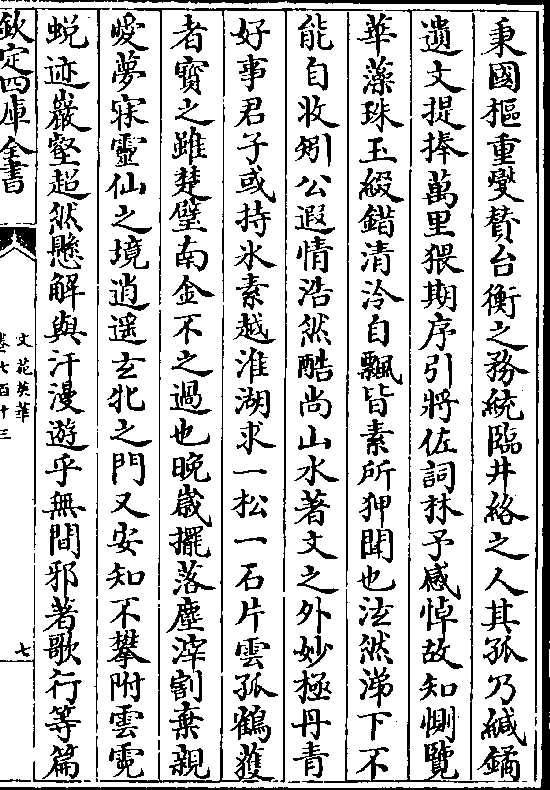 秉國樞重燮贊台衡之務統臨井絡之人其孤乃緘鐍
遺文提捧萬里猥期序引將佐詞林予感悼故知惻覽
華藻珠玉綴錯清泠自飄皆素所狎聞也泫然涕下不
能自收矧公遐情浩然酷尚山水著文之外妙極丹青
好事君子或持氷素越淮湖求一松一石片雲孤鶴獲
者寳之雖楚璧南金不之過也晚嵗擺落塵滓割棄親
愛夢寐靈仙之境逍遥玄牝之門又安知不攀附雲霓
蜕迹巖壑超然懸解與汗漫遊乎無間邪著歌行等篇
欽定四庫全書
文苑英華
卷七百十三
七